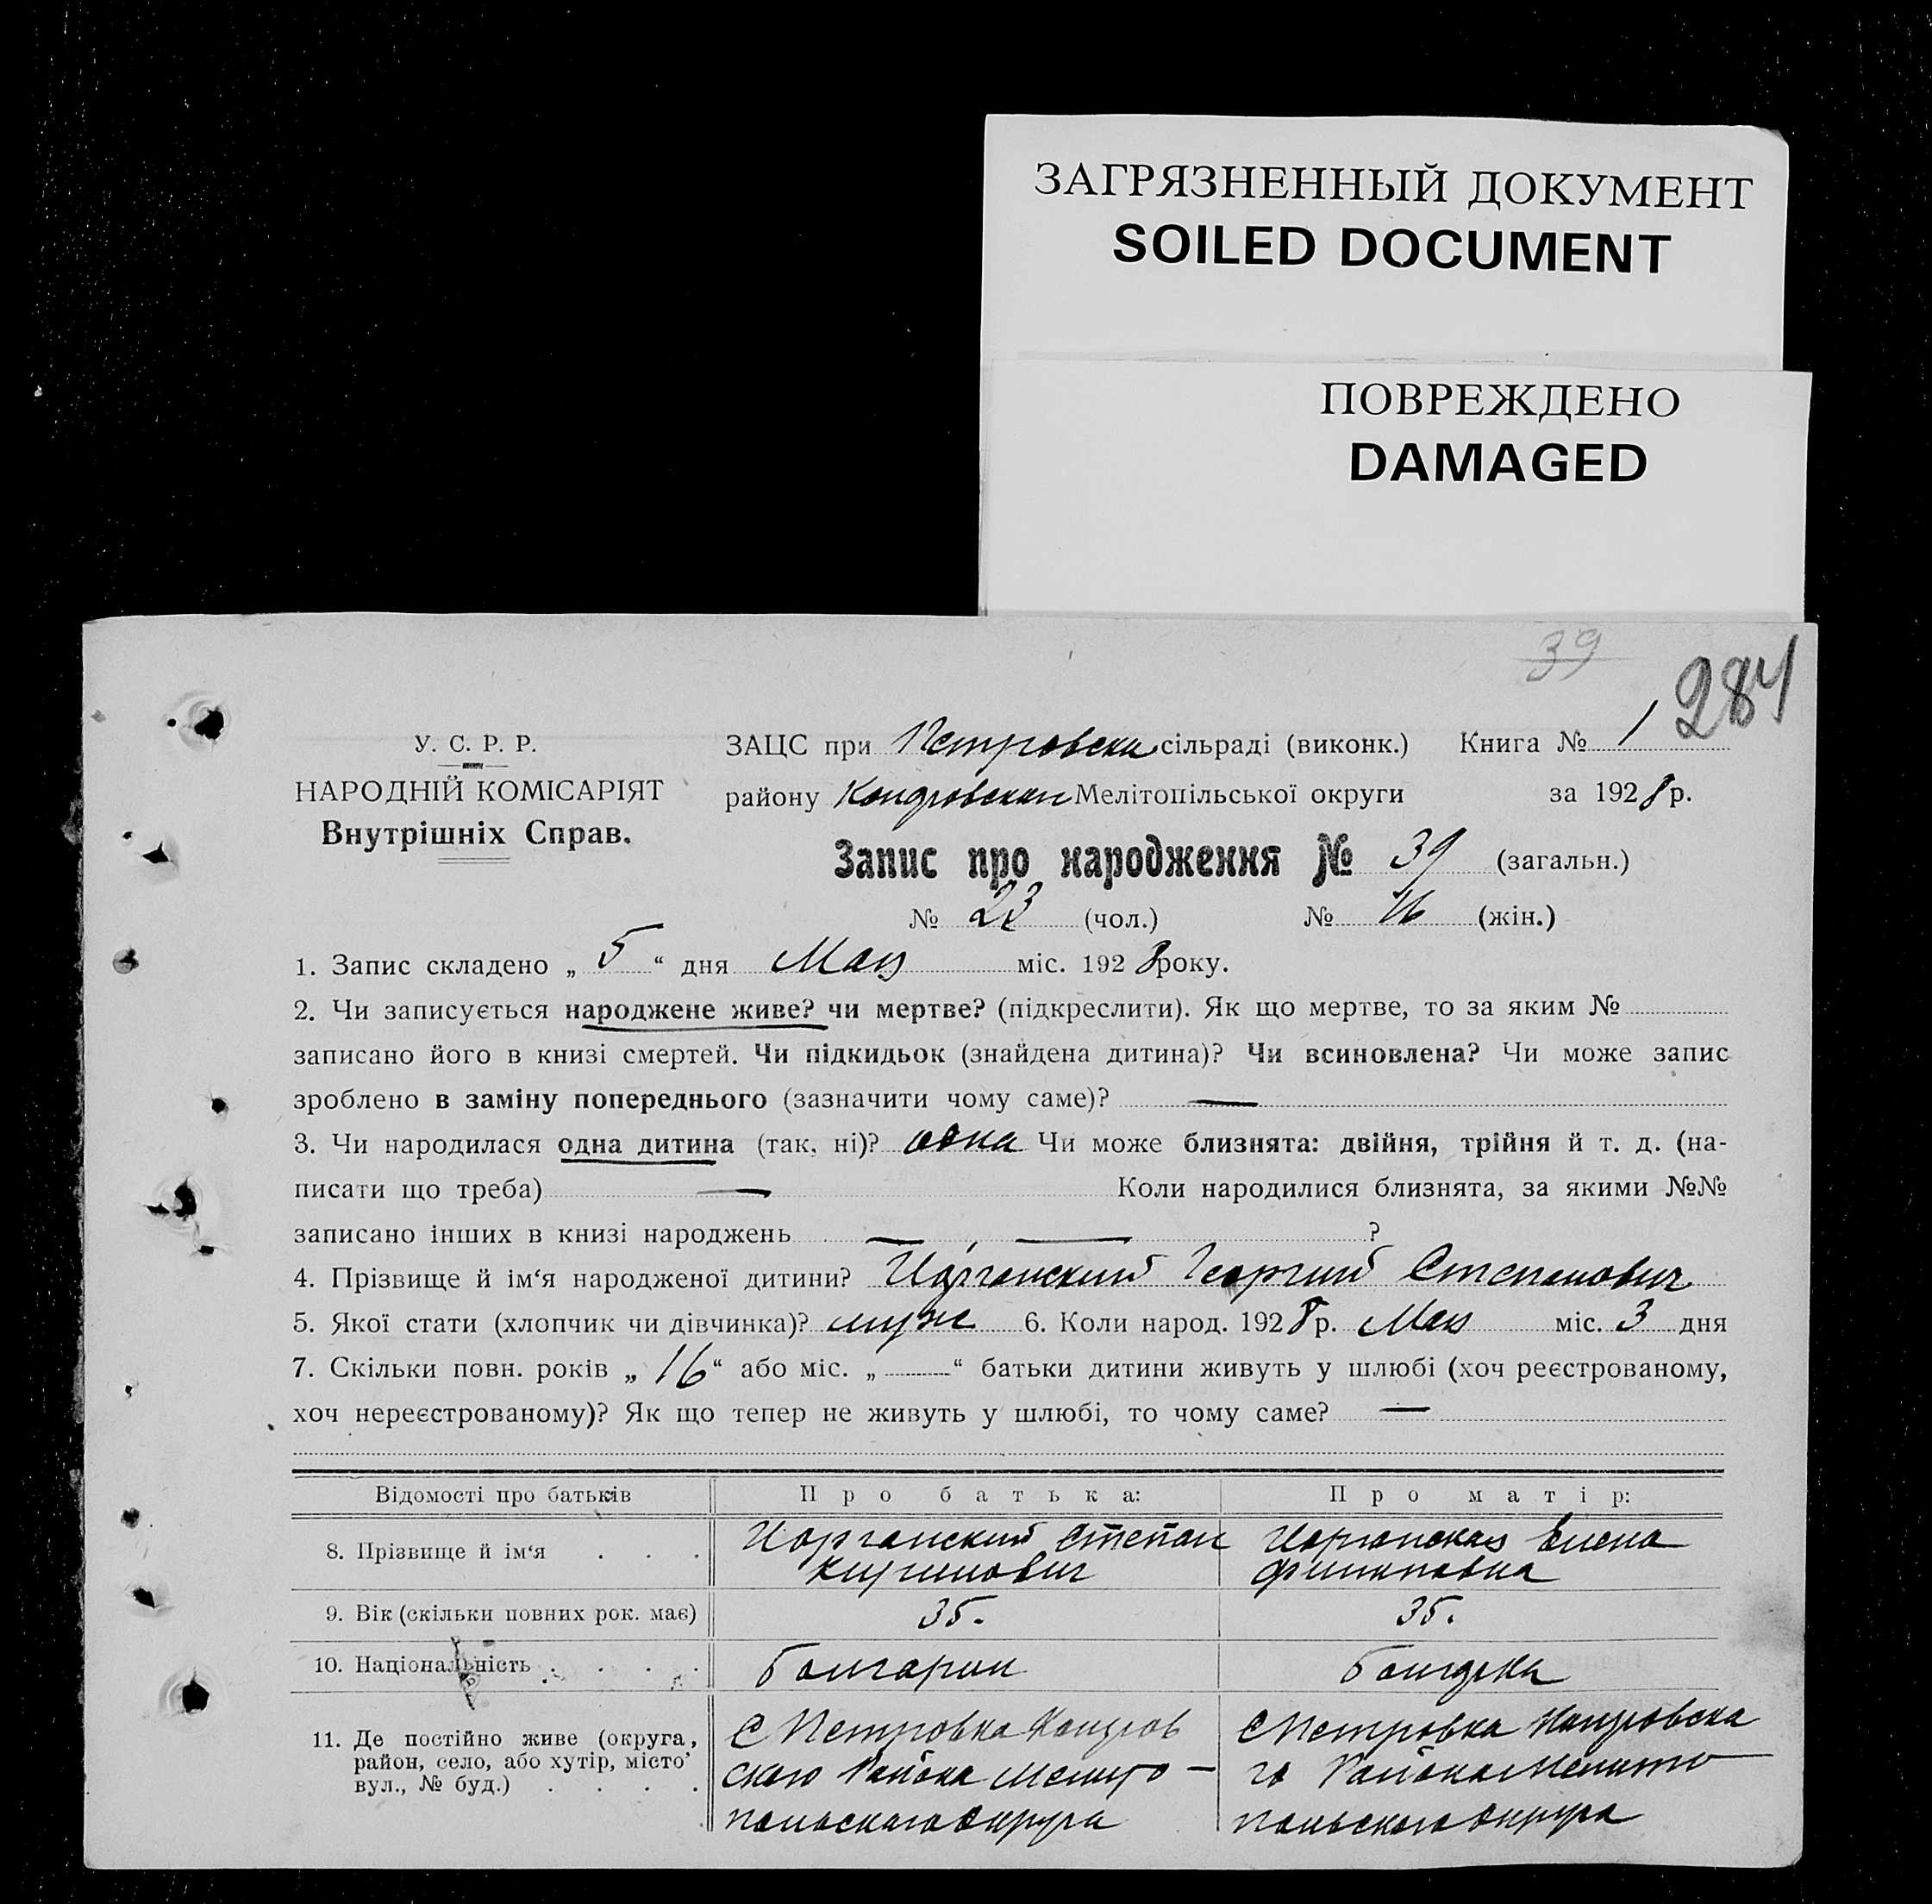 ЗАГРЯЗНЕННЫЙ ДОКУМЕНТ
SOILED DOCUMENT
ПОВРЕЖДЕНО
DAMAGED
39
284
У. С. Р. Р.
НАРОДНІЙ КОМІСАРІЯТ
Внутрішніх Справ.
ЗАЦС при Петровски сільраді (виконк.) Книга № 1
району Мелітопільської округи за 1928 р.
Запис про народження № 39 (загальн.)
№ 23 (чол.) № 16 (жін.)
1. Запис складено „ 5 “ дня Мая міс. 1928 року.
2. Чи записується народжене живе? чи мертве? (підкреслити). Як що мертве, то за яким №
записано його в книзі смертей. Чи підкидьок (знайдена дитина)? Чи всиновлена? Чи може запис
зроблено в заміну попереднього (зазначити чому саме)? —
3. Чи народилася одна дитина (так, ні)? одна Чи може близнята: двійня, трійня й т. д. (на-
писати що треба) — Коли народилися близнята, за якими №№
записано інших в книзі народжень — — ?
4. Прізвище й ім‘я народженої дитини? Иорганский Георгий Степанович
5. Якої стати (хлопчик чи дівчинка)? муж 6. Коли народ. 1928 р. Мая міс. 3 дня
7. Скільки повн. років „ 16 “ або міс. „ “ батьки дитини живуть у шлюбі (хоч реєстрованому,
хоч нереєстрованому)? Як що тепер не живуть у шлюбі, то чому саме? —
Відомості про батьків Про батька: Про матір:
8. Прізвище й ім‘я . . . Иорганский Степан Иорганская Елена
Кирилович Филиповна
9. Вік (скільки повних рок. має) 35. 35.
10. Національність . . . . Болгарин Болгарка
11. Де постійно живе (округа, С Петровка Конров С Петровка
район, село, або хутір, місто’ ского Района Мелито- го Района Мелито
вул., № буд.) . . . . польского Округа польского Округа